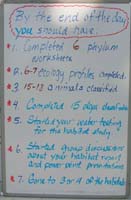 By the end of the day
you should have..
1. Completed 6 phylum
worksheets
2. 6-7 ecology profiles completed
3. 15-18 animals classified
4. Completed 15 page classification
5. Started your water testing
for the habitat study
6. Started group discussion
about your habitat report
and power point presentation
7. Gone to 3 or 4 of the habitats